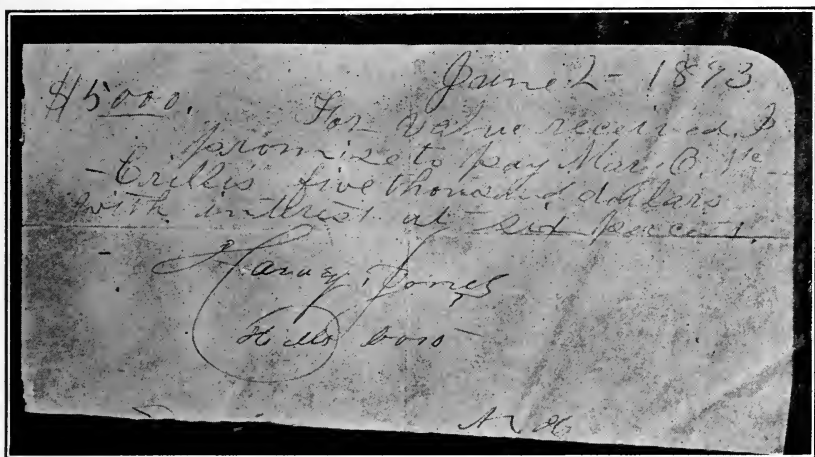 June 2 - 1893
$5000.
For value received I
promise to pay Mary O. Mc-
-Crillis five thousand dollars
with interest at six per cent.
Harvey Jones
Hillsboro
N H